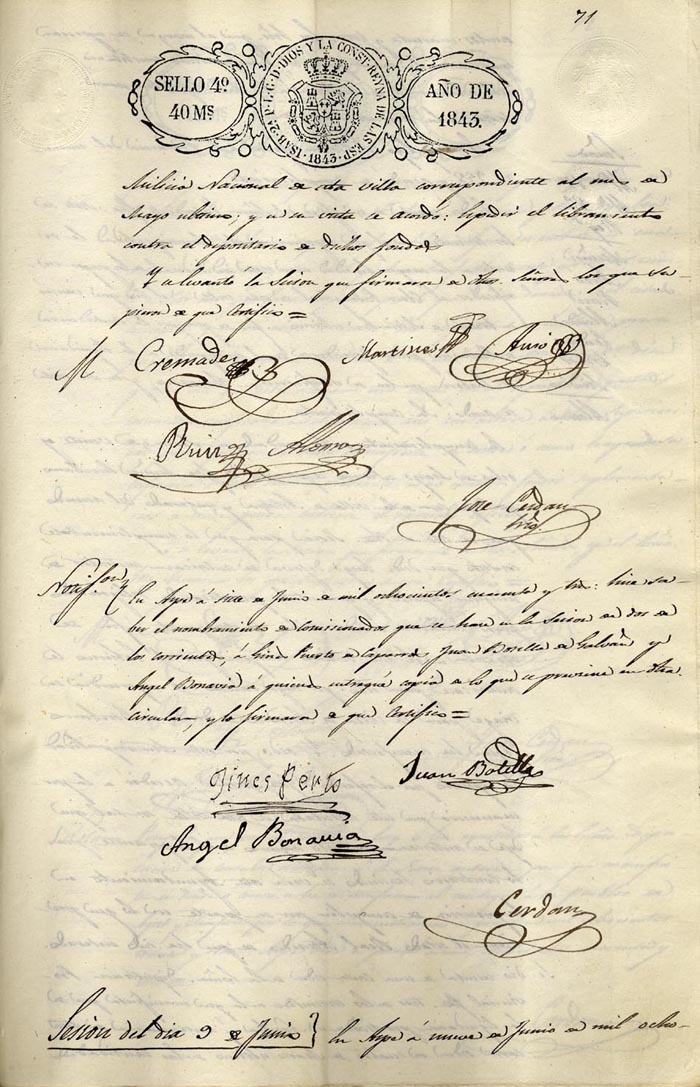 71
SELLO 4º
40 Ms
ISAB. 2ª P. L. G. D. DIOS Y LA CONST. REYNA DE LAS ESP. 1843.
AÑO DE
1843.
Milicia Nacional de esta villa correspondiente al mes de
Mayo ultimo: y a su vista se acordó: Espedir el libramiento
contra el depositario de dichos fondos
Y se levantó la Sesion que firmaron de dhos. Señores los que su
pieron de que Certifico =
M Cremades
Martines
Auso
Prior
Alonso
Jose Cerdan
Srio
Notif.on
En Aspe á siete de Junio de mil ochocientos cuarenta y tres: hice sa-
ber el nombramiento de comisionados que se hace en la Sesion de dos de
los corrientes, á Gines Puerto de Caparros, Juan Botella de Galvañ y
Angel Bonavia á quienes entregué copia de lo que se previene en otra
circular, y lo firmaron de que Certifico =
Gines Perto
Juan Botella
Angel Bonavia
Cerdan
Sesion del dia 9 de Junio } En Aspe á nueve de Junio de mil ocho-